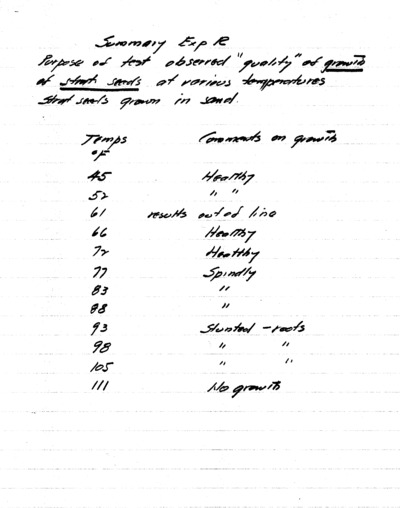 Summary Exp R
Purpose of test observed "quality" of growth
of strat seeds at various temperatures
Strat seeds grown in sand.
Temps Comments on growth
°F
45 Healthy
52 " "
61 results out of line
66 Healthy
72 Healthy
77 Spindly
83 "
88 "
93 Stunted - roots
98 " "
105 " "
111 No growth